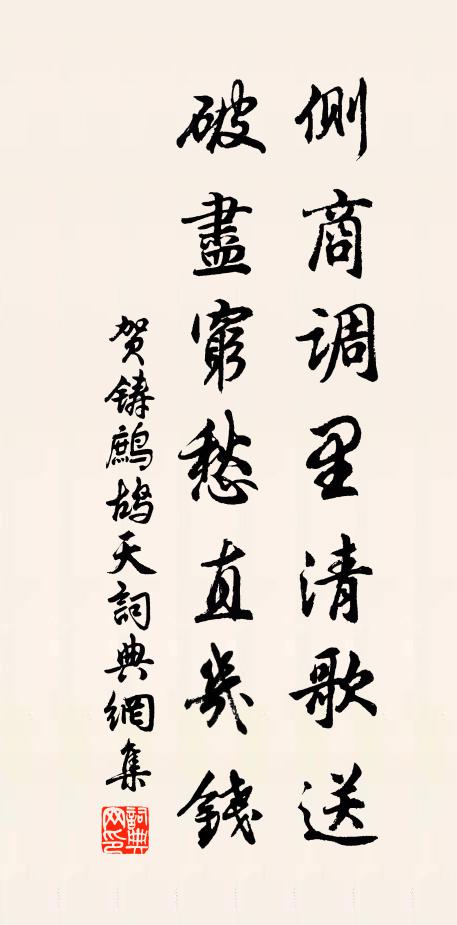 侧商调里清歌送
破盡窮愁直幾錢
贺鑄鷓鴣天詞典網集
詞典网印